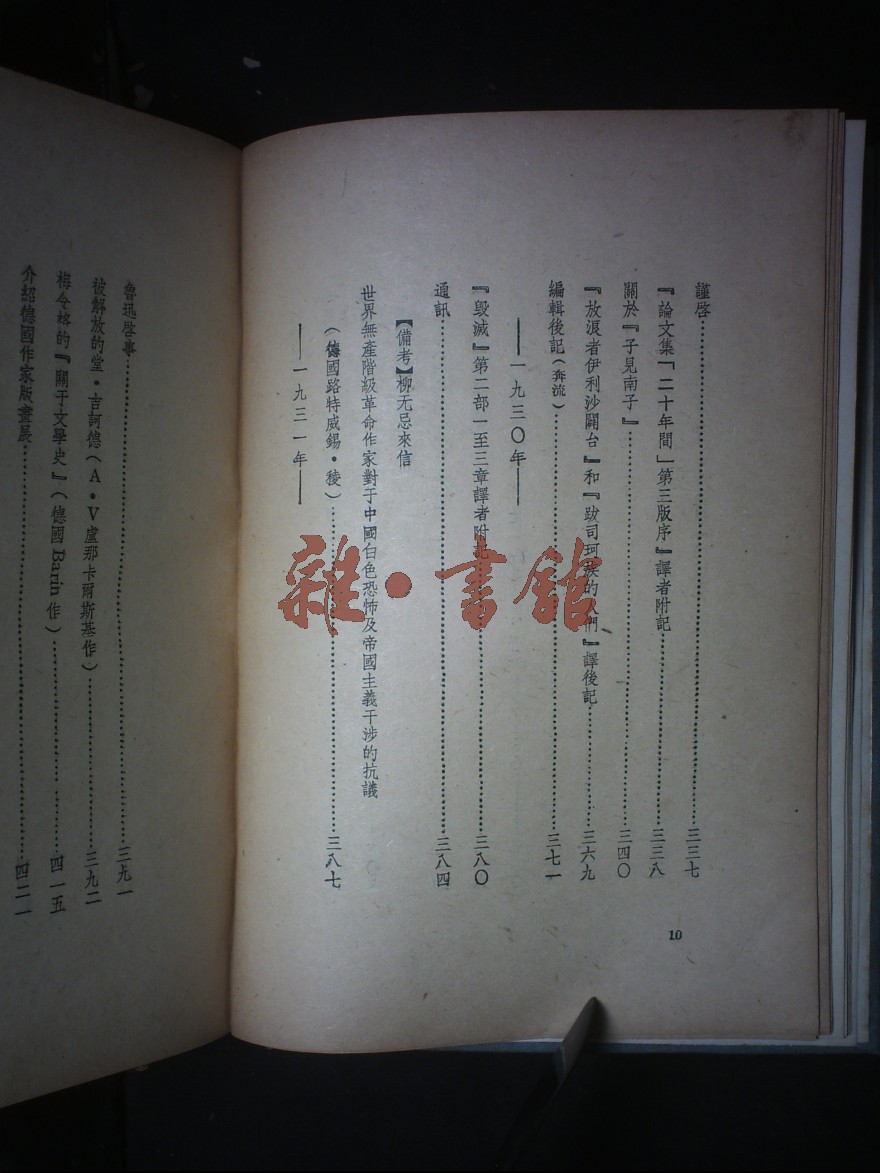 謹啓……三三七
『論文集「二十年間」第三版序』譯者附記……三三八
關於『子見南子』……三四〇
『放浪者伊利沙闢台』和『跋司珂族的人們』譯後記……三六九
編輯後記（奔流）……三七一
——一九三〇年——
『毀滅』第二部一至三章譯者附記……三八〇
通訊……三八四
【備考】柳无忌來信
世界無產階級革命作家對于中國白色恐怖及帝國主義干涉的抗議
（德國路特威錫·稜）……三八七
——一九三一年——
10
魯迅啓事……三九一
被解放的堂·吉訶德（A·V盧那卡爾斯基作）……三九二
梅令格的『關于文學史』（德國Barin作）……四一五
介紹德國作家版畫展……四二一
雜·書館